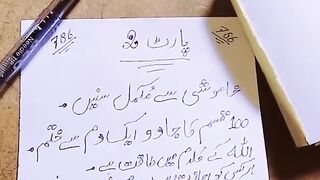 786 786
پارٹ 2
خاموشی سے مکمل سنیں۔
100 قسم کا جادو ایک دم سے ختم۔
اللہ کے کلام میں طاقت ہے
Needle